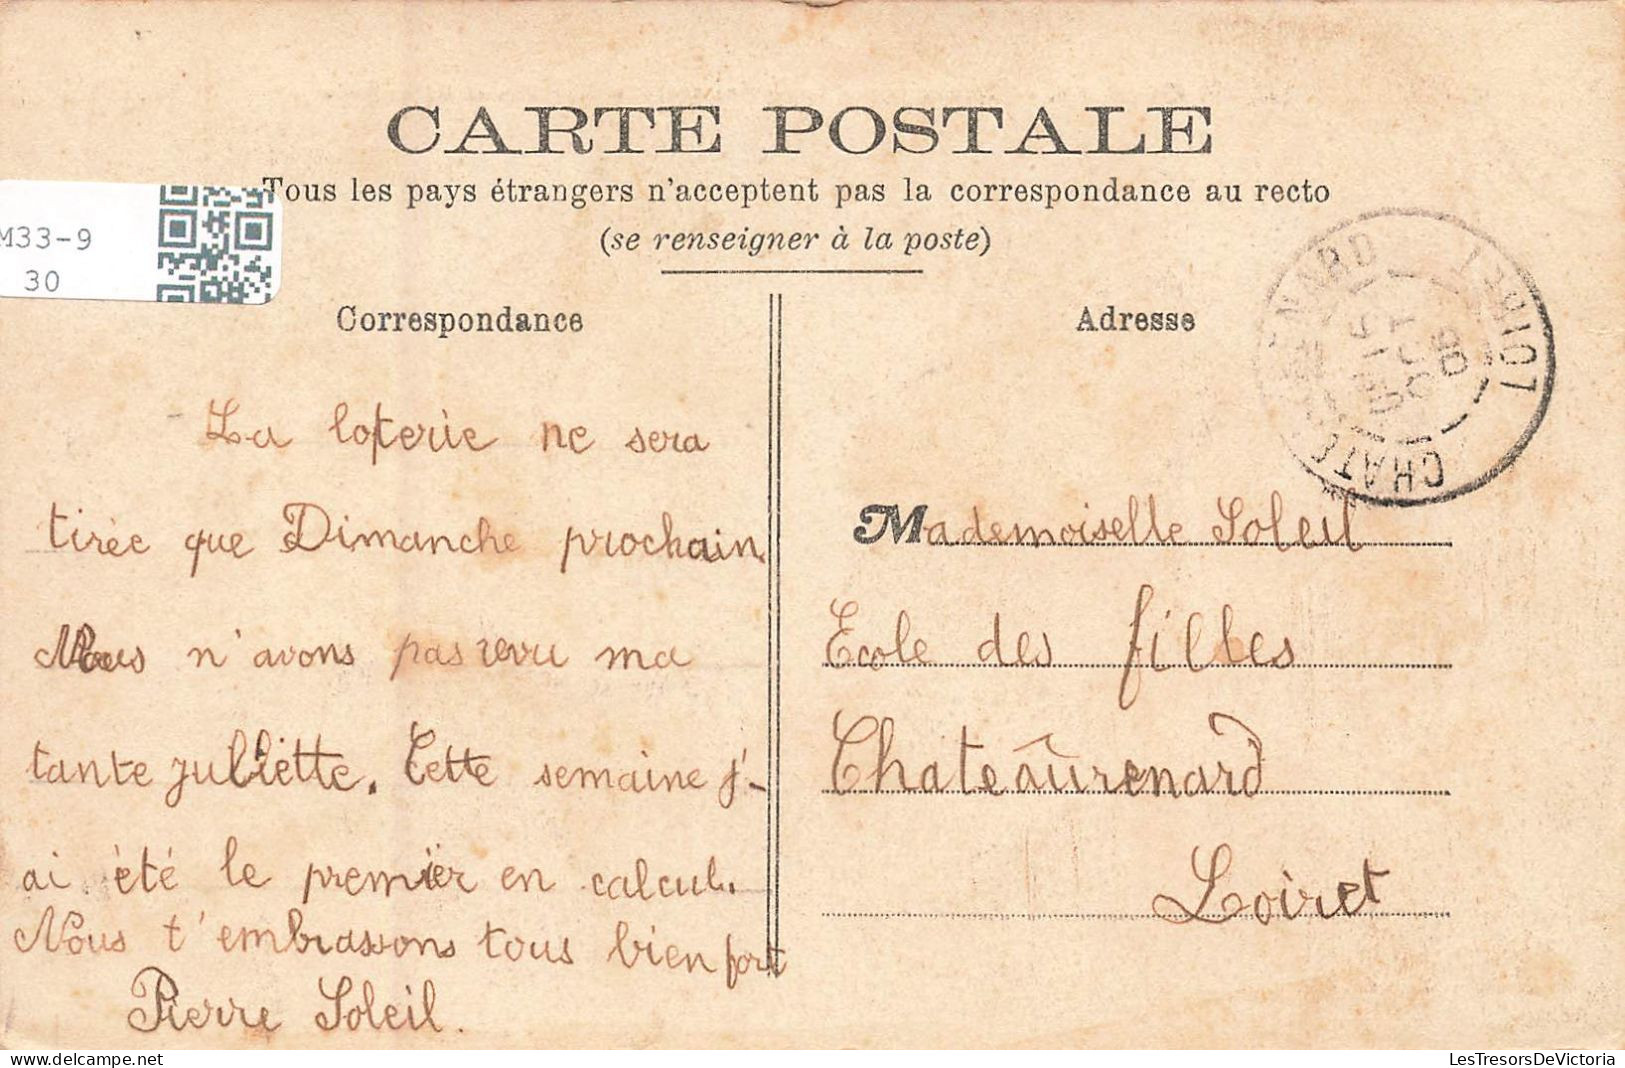 CARTE POSTALE
Tous les pays étrangers n'acceptent pas la correspondance au recto
(se renseigner à la poste)
M33-9
30
Correspondance
La loterie ne sera
tirée que Dimanche prochain.
Nous n'avons pas revu ma
tante Juliette. Cette semaine j'-
ai été le premier en calcul.
Nous t'embrassons tous bien fort
Pierre Soleil.
Adresse
LOIRET
Mademoiselle Soleil
Ecole des filles
Chateâurenard
Loiret
LesTresorsDeVictoria